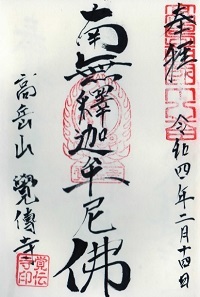 奉拝
令和四年二月十四日
南無釋迦牟尼佛
高岳山
覺傳寺
覚伝
寺印